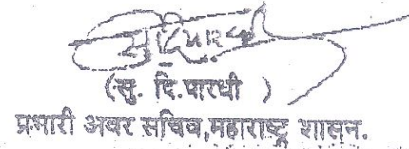 (सु. दि.पारधी )
प्रभारी अवर सचिव,महाराष्ट्र शासन.